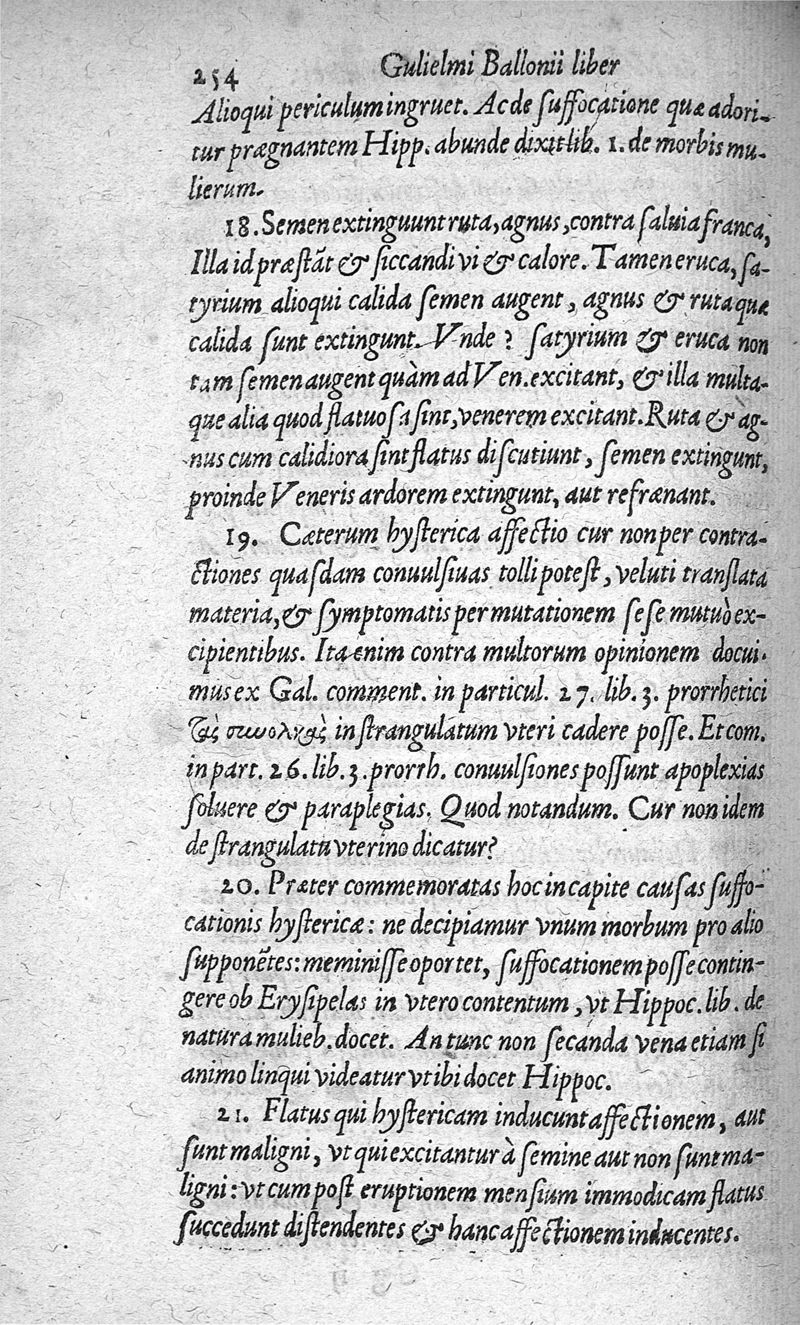 254 Gulielmi Ballonii liber
Alioqui periculum ingruet. Ac de ſuffocatione quæ adori-
tur prægnantem Hipp. abunde dixit lib. 1. de morbis mu-
lierum.
18. Semen extinguunt ruta, agnus, contra ſaluia franca,
Illa id præſtāt & ſiccandi vi & calore. Tamen eruca, ſa-
tyrium alioqui calida ſemen augent, agnus & ruta quæ
calida ſunt extingunt. Vnde? ſatyrium & eruca non
tam ſemen augent quàm ad Ven. excitant, & illa multa-
que alia quod flatuoſa ſint, venerem excitant. Ruta & ag-
nus cum calidiora ſint flatus diſcutiunt, ſemen extingunt,
proinde Veneris ardorem extingunt, aut refrænant.
19. Cæterum hyſterica affectio cur non per contra-
ctiones quaſdam conuulſiuas tolli poteſt, veluti tranſlata
materia, & ſymptomatis permutationem ſe ſe mutuò ex-
cipientibus. Ita enim contra multorum opinionem docui-
mus ex Gal. comment. in particul. 27. lib. 3. prorrhetici
τὰς συνολκὰς in ſtrangulatum vteri cadere poſſe. Et com.
in part. 26. lib. 3. prorrh. conuulſiones poſſunt apoplexias
ſoluere & paraplegias. Quod notandum. Cur non idem
de ſtrangulatu vterino dicatur?
20. Præter commemoratas hoc in capite cauſas ſuffo-
cationis hyſtericæ: ne decipiamur vnum morbum pro alio
ſupponētes: meminiſſe oportet, ſuffocationem poſſe contin-
gere ob Eryſipelas in vtero contentum, vt Hippoc. lib. de
natura mulieb. docet. An tunc non ſecanda vena etiam ſi
animo linqui videatur vt ibi docet Hippoc.
21. Flatus qui hyſtericam inducunt affectionem, aut
ſunt maligni, vt qui excitantur à ſemine aut non ſunt ma-
ligni: vt cum poſt eruptionem menſium immodicam flatus
ſuccedunt diſtendentes & hanc affectionem inducentes.